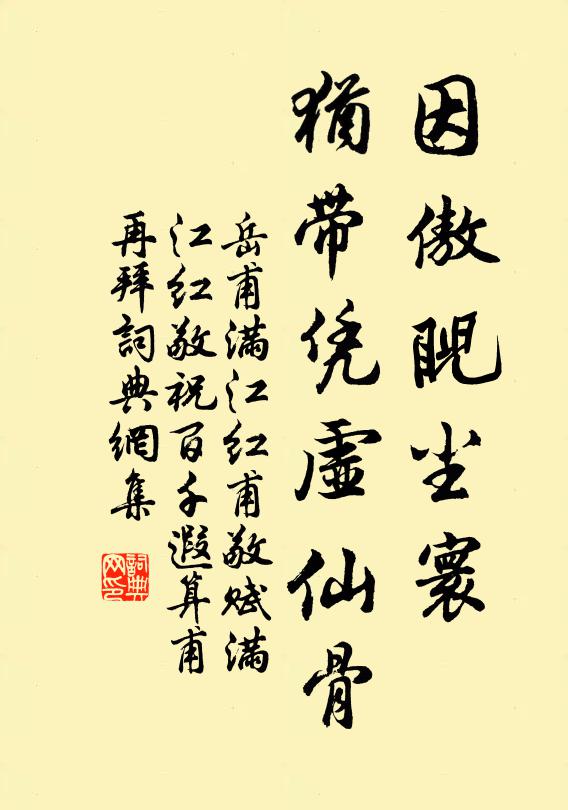 因傲睨尘寰
猶带凭虚仙骨
岳甫满江红甫敬赋满
江红敬祝百千遐算甫
再拜詞典網集
詞典網印